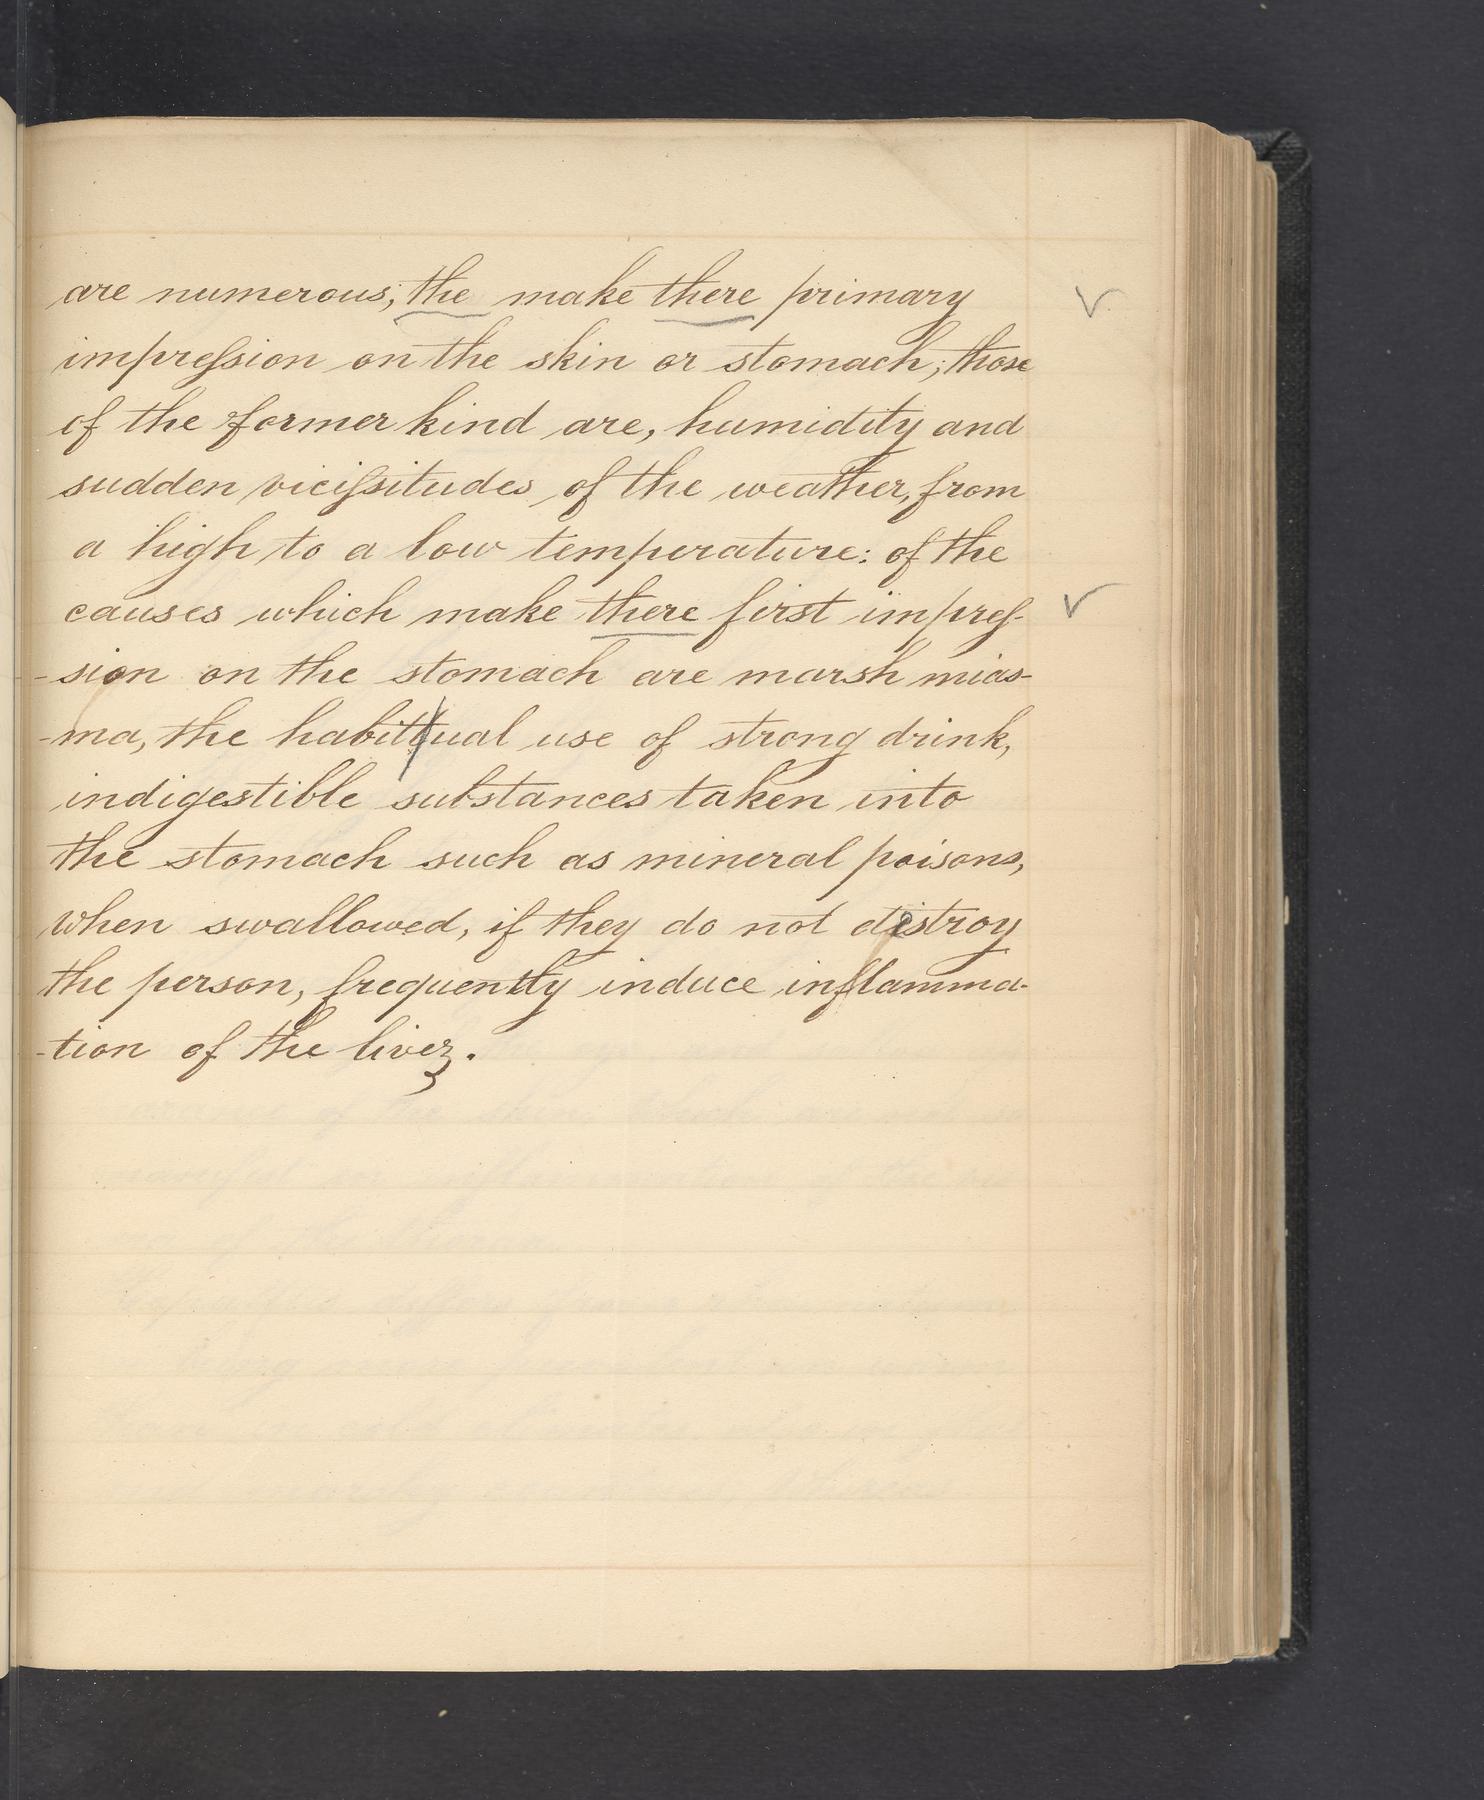 are numerous; the make there primary
impreſsion on the skin or stomach; those
of the former kind are, humidity and
sudden viciſsitudes of the weather, from
a high to a low temperature: of the
causes which make there first impreſ-
-sion on the stomach are marsh mias-
-ma, the habittual use of strong drink,
indigestible substances taken into
the stomach such as mineral poisons,
when swallowed, if they do not distroy
the person, frequently induce inflamma-
-tion of the liver.